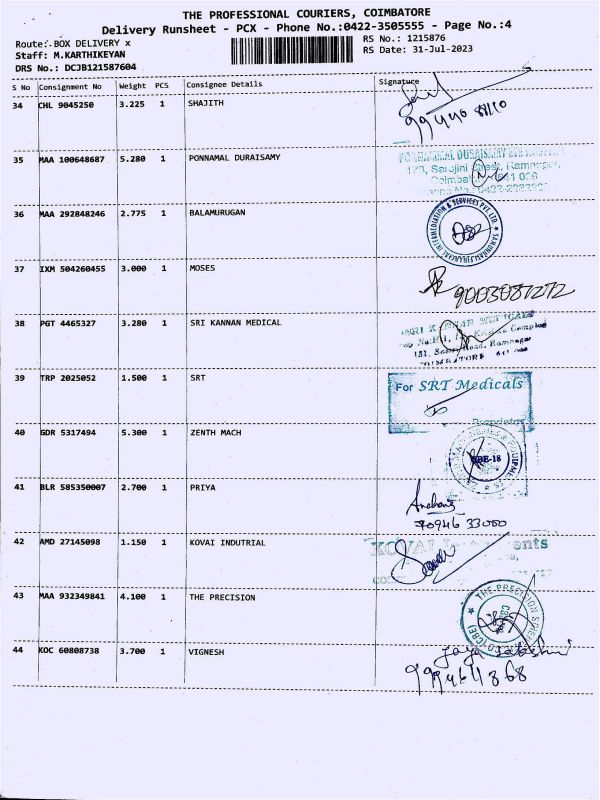 THE PROFESSIONAL COURIERS, COIMBATORE
Delivery Runsheet - PCX - Phone No.:0422-3505555 - Page No.:4
Route:.BOX DELIVERY x
RS No.: 1215876
Staff: M.KARTHIKEYAN
RS Date: 31-Jul-2023
DRS No.: DCJB121587604
S No Consignment No Weight PCS Consignee Details Signature
34 CHL 9045250 3.225 1 SHAJITH
35 MAA 100648687 5.280 1 PONNAMAL DURAISAMY
173, Sarojini Street, Ramnagar,
36 MAA 292848246 2.775 1 BALAMURUGAN
37 IXM 504260455 3.000 1 MOSES
9003087272
38 PGT 4465327 3.280 1 SRI KANNAN MEDICAL
39 TRP 2025052 1.500 1 SRT
For SRT Medicals
Proprietor
40 GDR 5317494 5.300 1 ZENTH MACH
41 BLR 585350007 2.700 1 PRIYA
70946 33000
42 AMD 27145098 1.150 1 KOVAI INDUTRIAL
KOVAI
43 MAA 932349841 4.100 1 THE PRECISION
THE PRECISION
44 KOC 60808738 3.700 1 VIGNESH